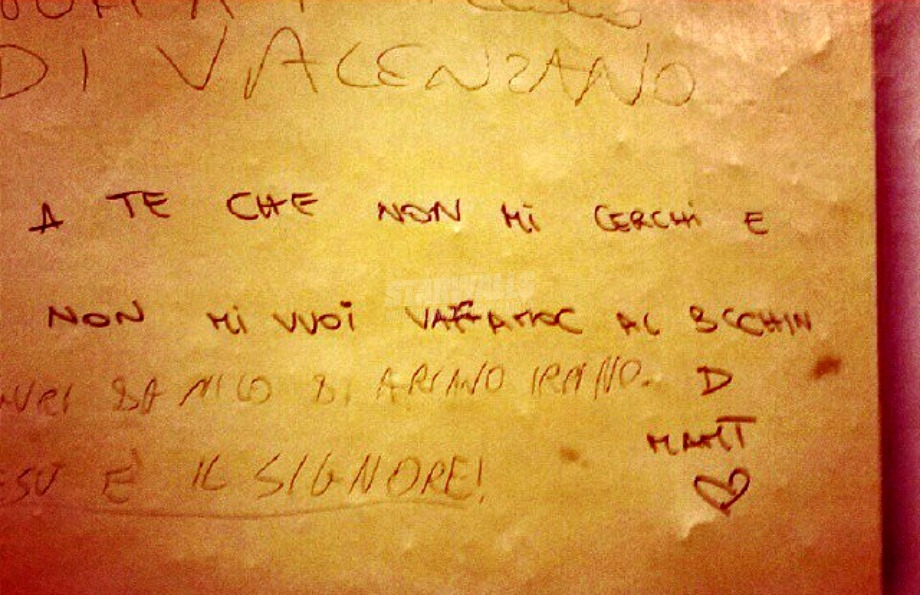 DI VALENZANO
A TE CHE NON MI CERCHI E
NON MI VUOI VAFFAMMOC AL BCCHIN
DA NICO DI ARIANO IRPINO.
D
MAMT
È IL SIGNORE!
STARWALLS